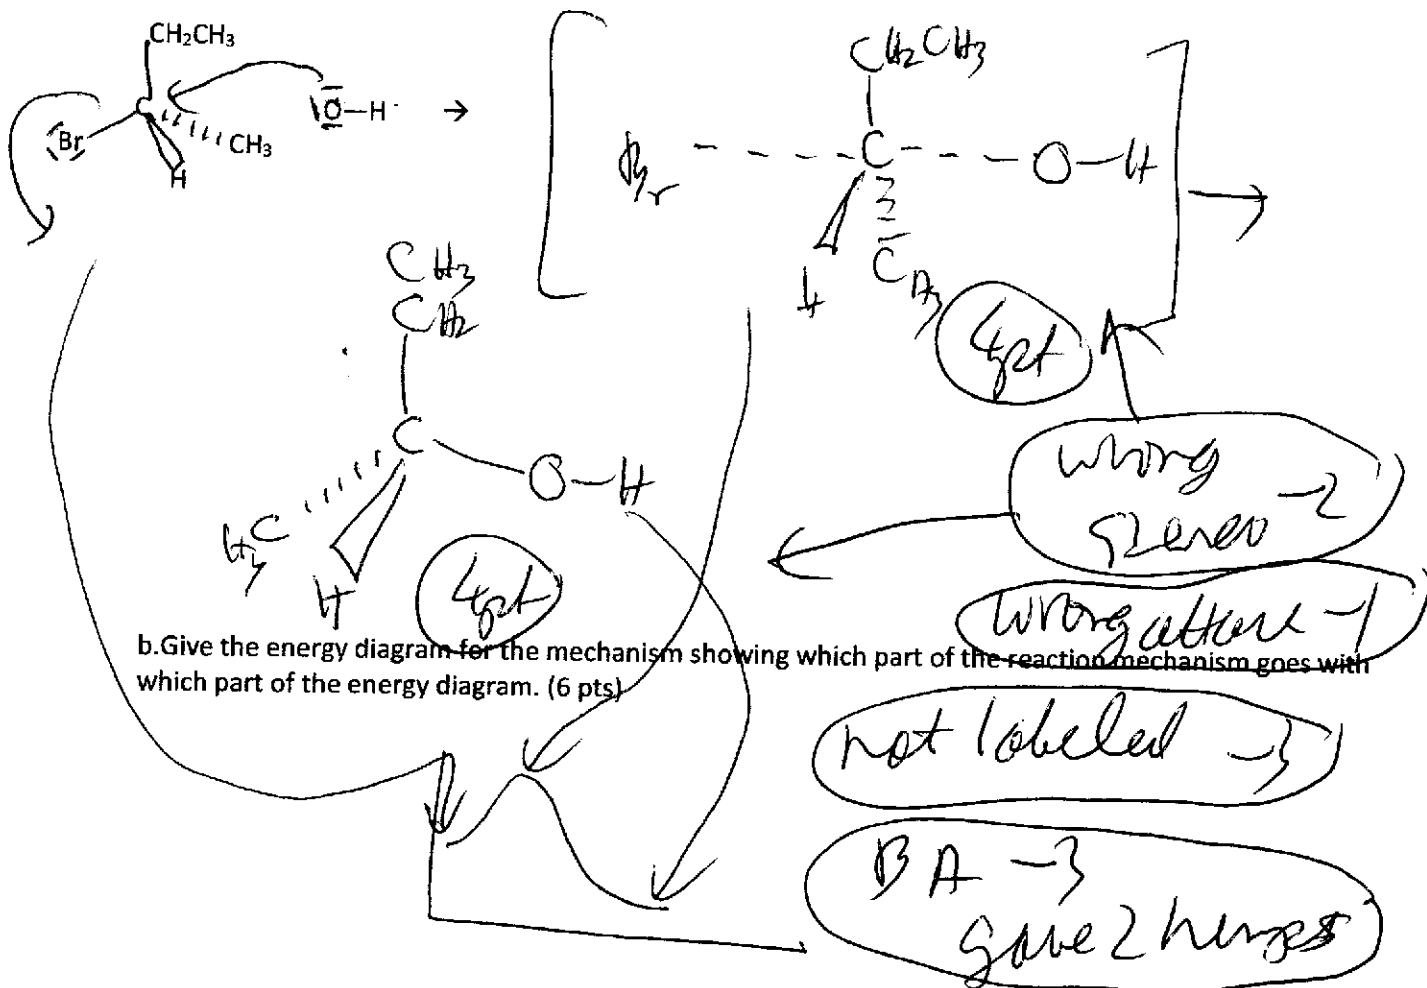 CH₂CH₃
CH₂CH₃
Br
C
CH₃
H
|O—H
→
Br - - - - C - - - O—H
H
CH₃
4pt
CH₃
CH₂
C
O—H
H₃C
H
4pt
wrong
stereo -2
wrong attack -1
b.Give the energy diagram for the mechanism showing which part of the reaction mechanism goes with
which part of the energy diagram. (6 pts)
not labeled -3
-3
gave 2 humps